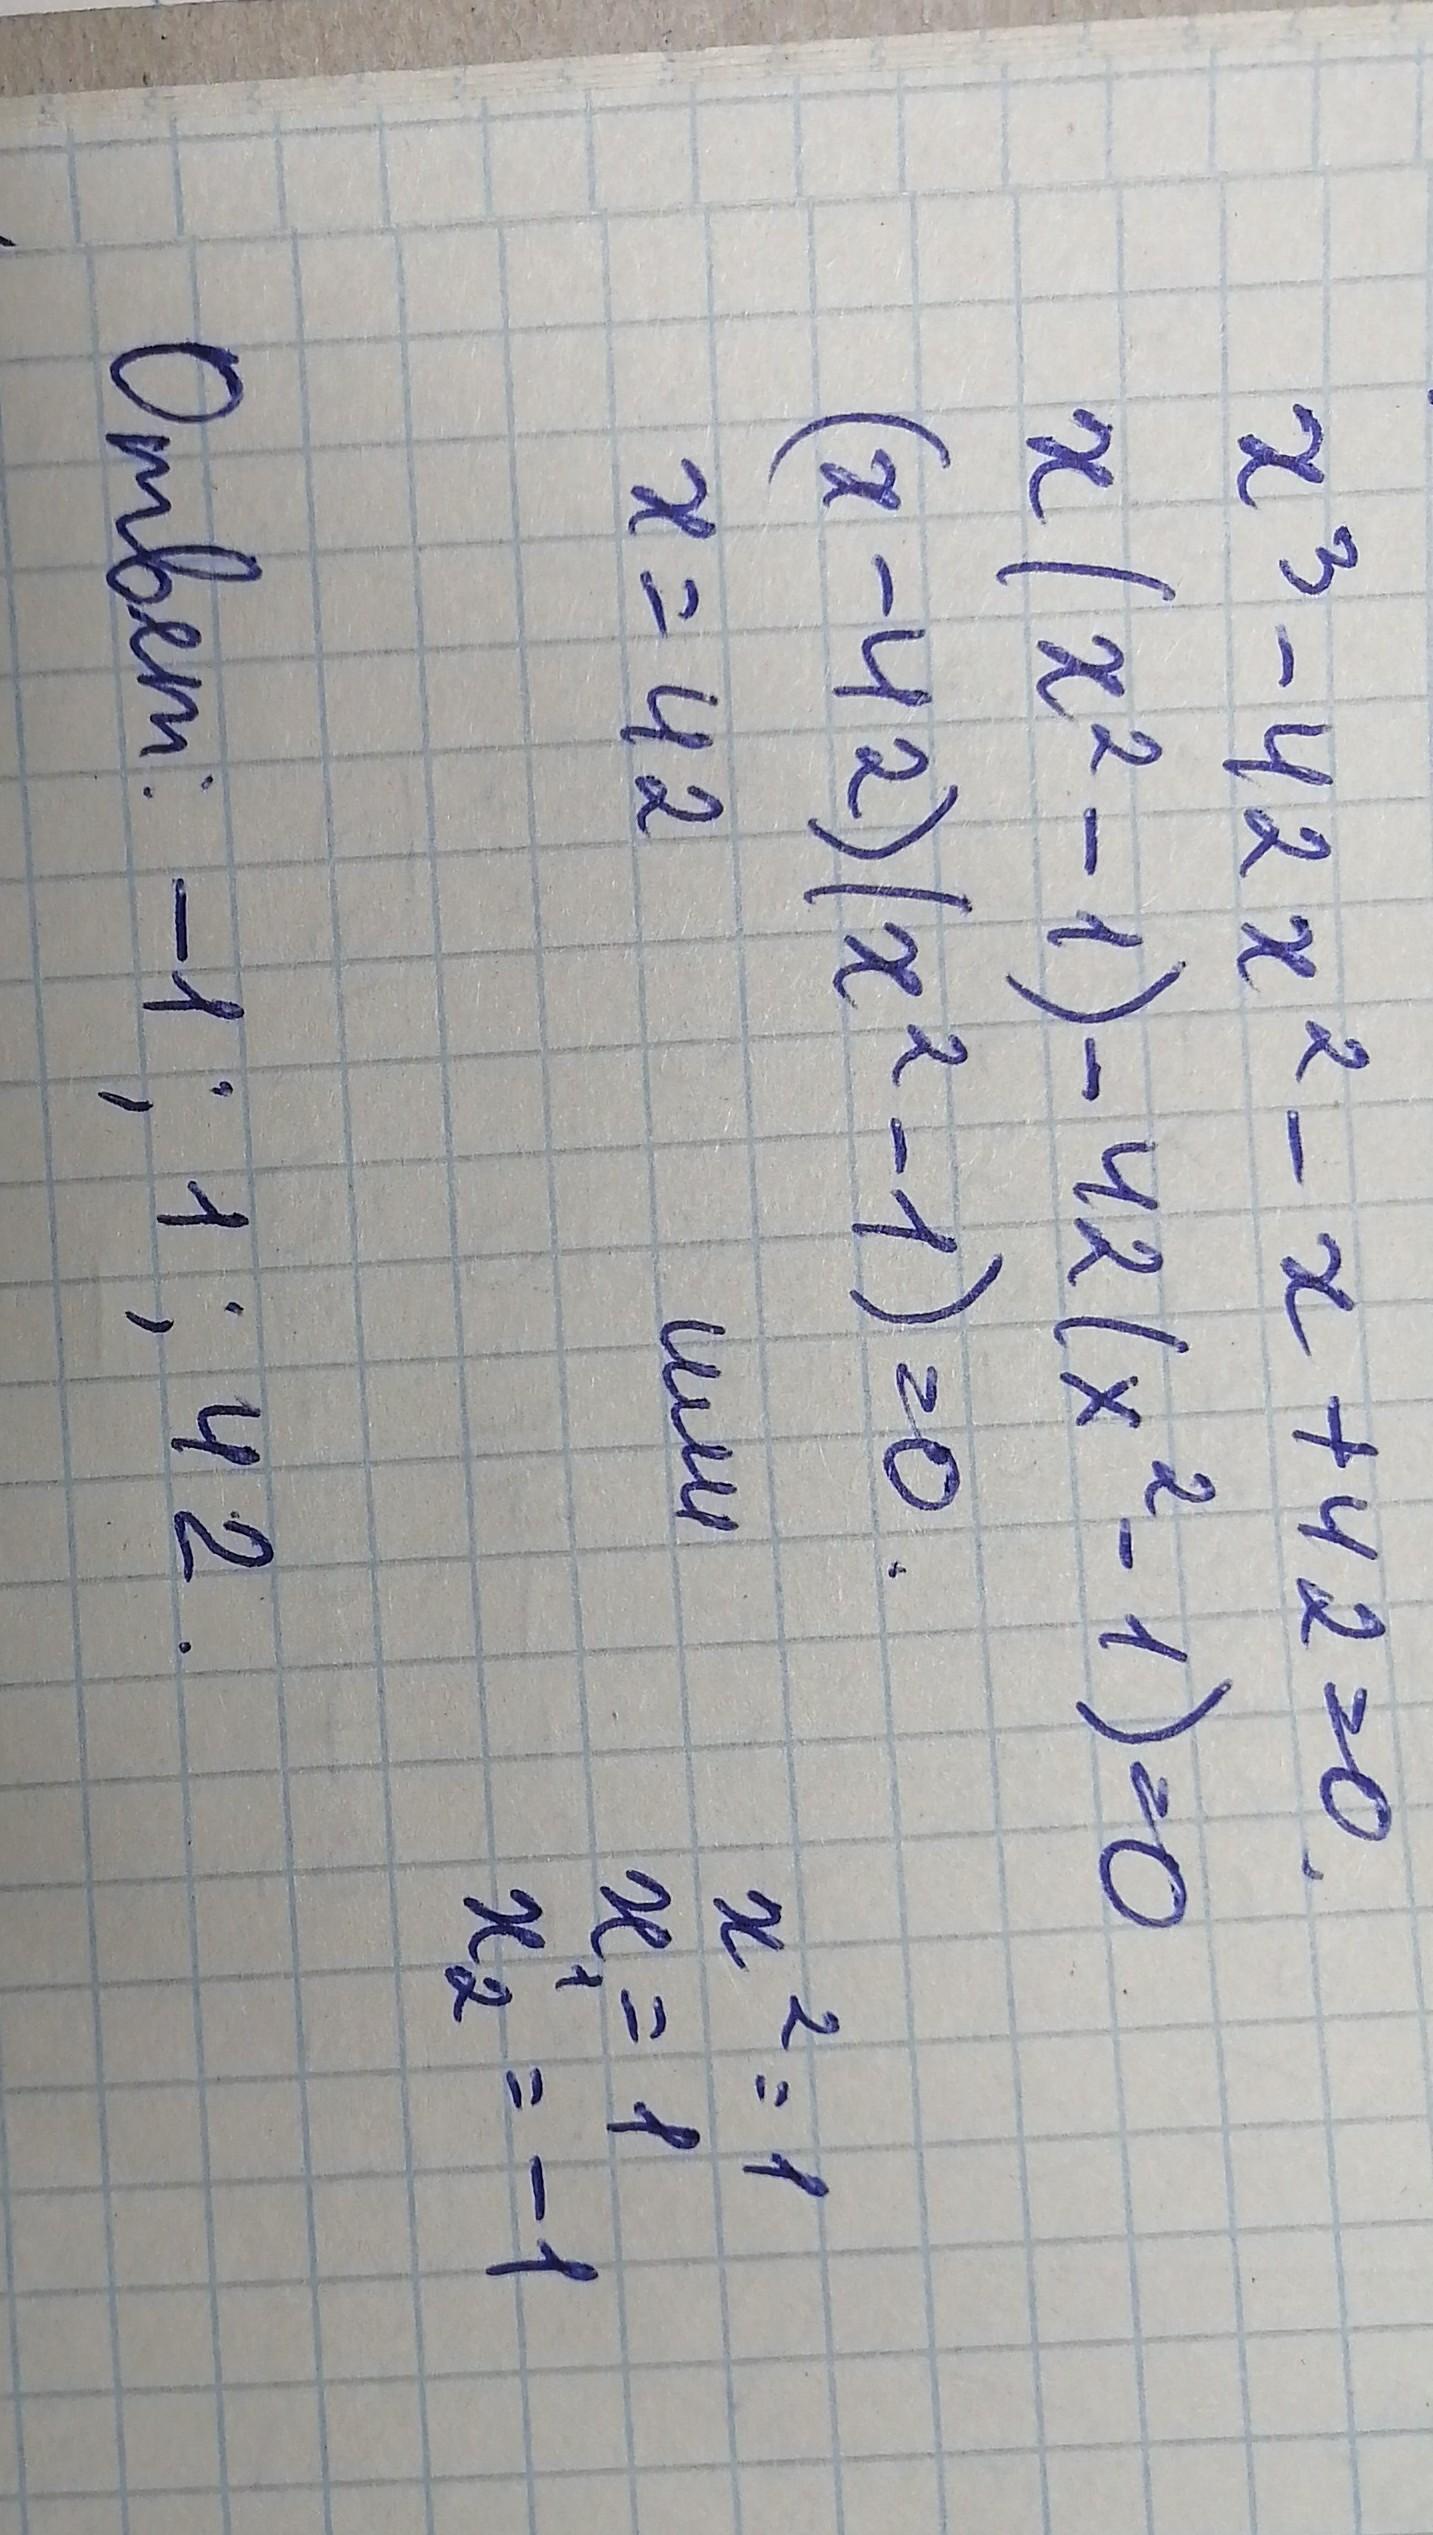 x³ - 42x² - x + 42 = 0.
x(x² - 1) - 42(x² - 1) = 0
(x - 42)(x² - 1) = 0.
x = 42 или x² = 1
x₁ = 1
x₂ = -1
Ответ: -1; 1; 42.